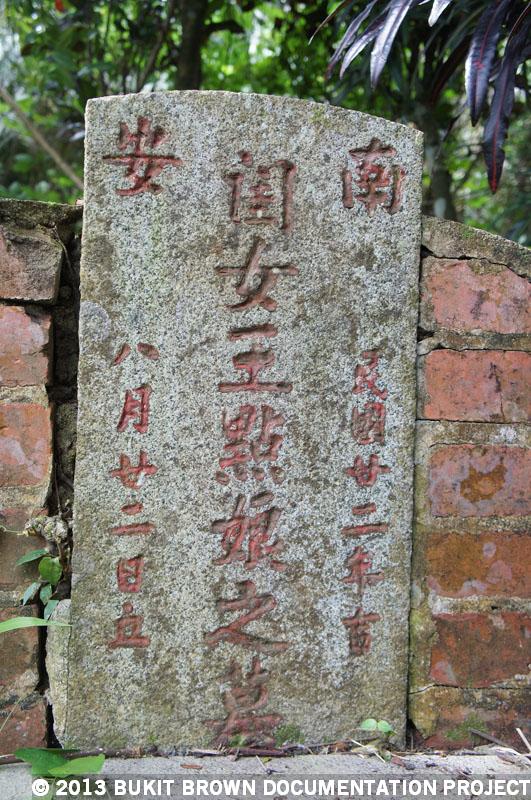 南安
民國廿二年吉
閨女王點娘之墓
八月廿二日立
© 2013 BUKIT BROWN DOCUMENTATION PROJECT